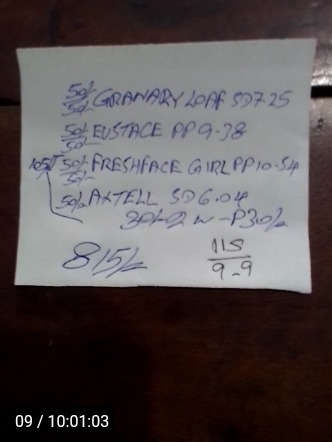 50/- 50/- GRANARY LOAF SD 7.25
50/- 50/- EUSTACE PP 9.38
50/- 50/- FRESHFACE GIRL PP 10.54
50/- AXTELL SD 6.04
30/- 2 W - P 30/-
815/-
115
9-9
09 / 10:01:03